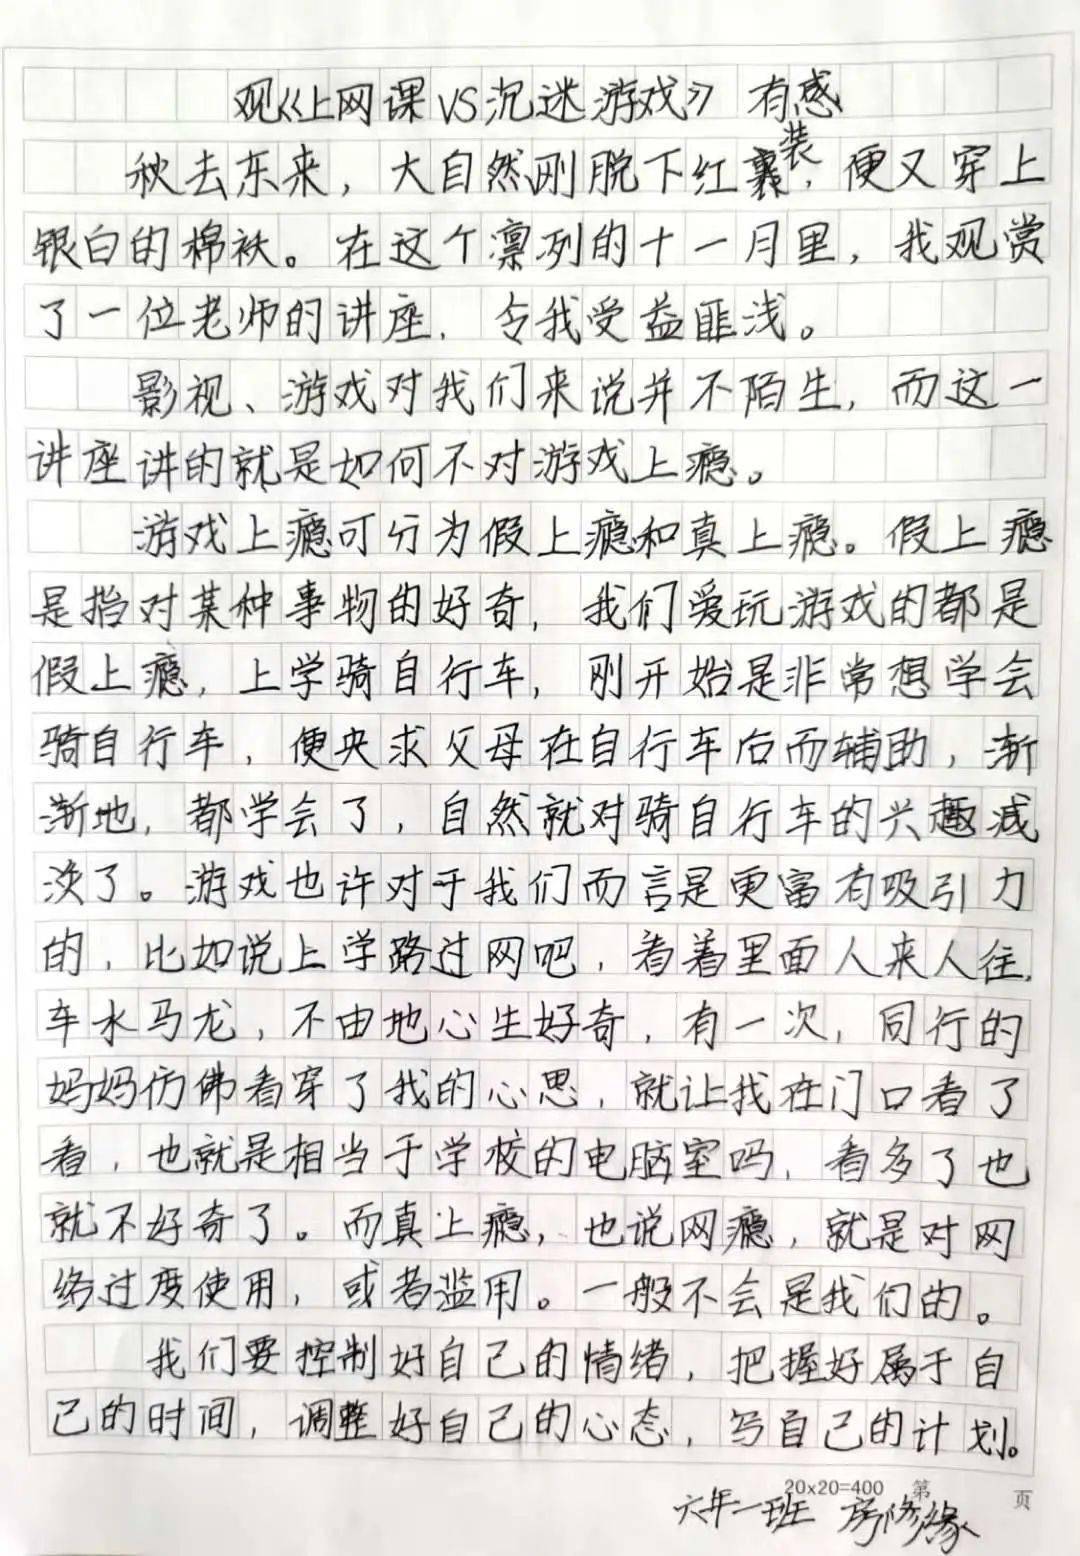 观《上网课VS沉迷游戏》有感
秋去东来，大自然刚脱下红装，便又穿上
银白的棉袄。在这个凛冽的十一月里，我观赏
了一位老师的讲座，令我受益匪浅。
影视、游戏对我们来说并不陌生，而这一
讲座讲的就是如何不对游戏上瘾。
游戏上瘾可分为假上瘾和真上瘾。假上瘾
是指对某种事物的好奇，我们爱玩游戏的都是
假上瘾，上学骑自行车，刚开始是非常想学会
骑自行车，便央求父母在自行车后而辅助，渐
渐地，都学会了，自然就对骑自行车的兴趣减
淡了。游戏也许对于我们而言是更富有吸引力
的，比如说上学路过网吧，看着里面人来人往，
车水马龙，不由地心生好奇，有一次，同行的
妈妈仿佛看穿了我的心思，就让我在门口看了
看，也就是相当于学校的电脑室吗，看多了也
就不好奇了。而真上瘾，也说网瘾，就是对网
络过度使用，或者滥用。一般不会是我们的。
我们要控制好自己的情绪，把握好属于自
己的时间，调整好自己的心态，写自己的计划。
20x20=400 第 页
六年一班 房修缘